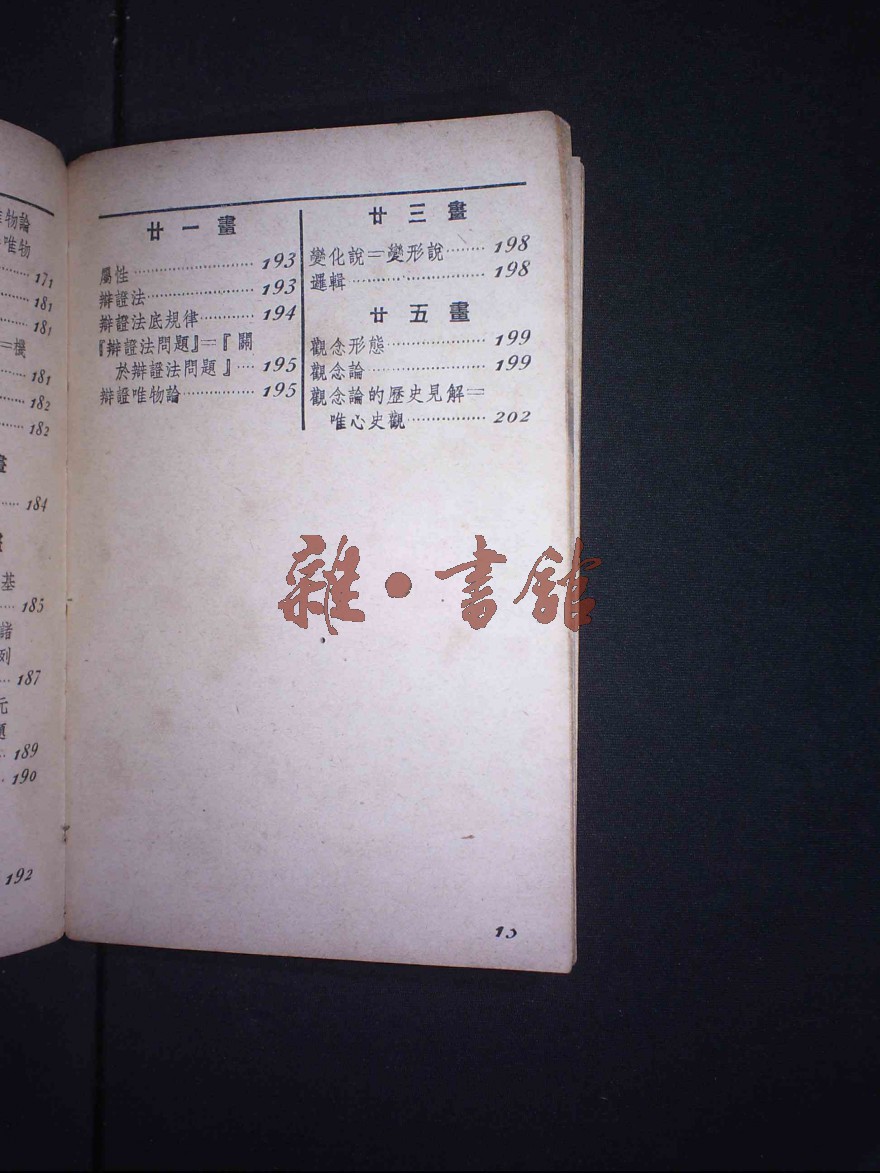 唯物論
唯物
171
181
181
＝機
181
182
182
畫
184
畫
基
185
諸
列
187
元
題
189
190
192
廿一畫
屬性……………… 193
辯證法……………… 193
辯證法底規律……… 194
『辯證法問題』＝『關
於辯證法問題』… 195
辯證唯物論………… 195
廿三畫
變化說＝變形說…… 198
邏輯………………… 198
廿五畫
觀念形態…………… 199
觀念論……………… 199
觀念論的歷史見解＝
唯心史觀………… 202
雜·書館